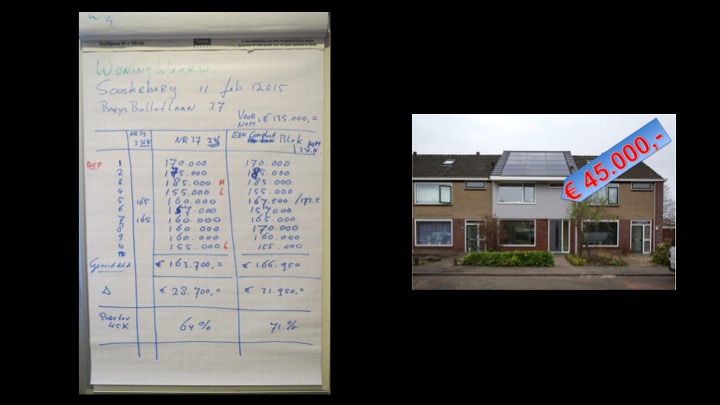 WoningWaarde.
Soesterberg 11 feb 2015
Buys Ballotlaan 37
VOOR NOM: € 135.000,=
NR 37 EEN Blok
1 170.000 170.000
2 175.000 185.000
3 185.000 H 185.000
4 155.000 L 155.000
5 165 160.000 167.500
6 157.000 157.000
7 165 160.000 165.000
8 160.000 170.000
9 160.000 160.000
10 155.000 L 155.000
Gemiddeld € 163.700,= € 166.950
Δ € 28.700,= € 31.950,=
45K 64% 71%
€ 45.000,-